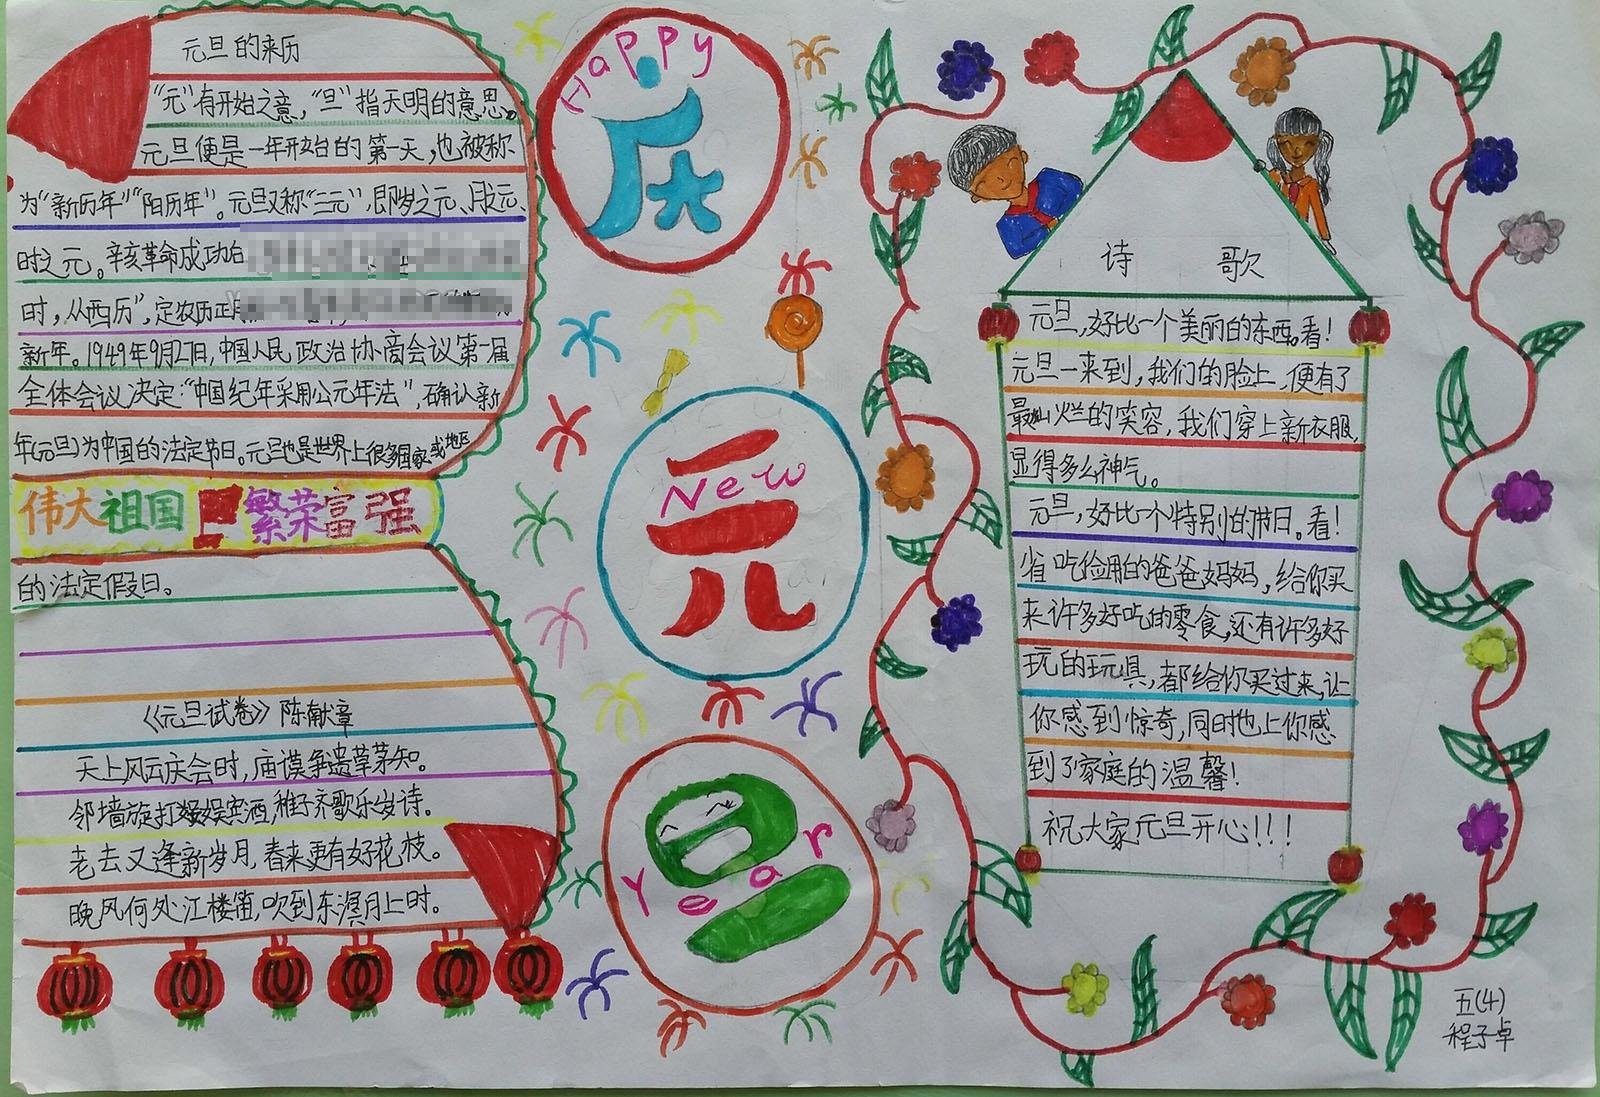 元旦的来历
“元”有开始之意，“旦”指天明的意思。
元旦便是一年开始的第一天，也被称
为“新历年”“阳历年”。元旦又称“三元”，即岁之元、月之元、
时之元。辛亥革命成功
时，从西历”，定农历正
新年。1949年9月27日，中国人民政治协商会议第一届
全体会议决定：“中国纪年采用公元年法”，确认新
年(元旦)为中国的法定节日。元旦也是世界上很多国家或地区
伟大祖国 繁荣富强
的法定假日。
《元旦试卷》陈献章
天上风云庆会时，庙谟争遗草茅知。
邻墙旋打娱宾酒，稚子齐歌乐岁诗。
老去又逢新岁月，春来更有好花枝。
晚风何处江楼笛，吹到东溟月上时。
Happy
庆
New
元
旦
Year
诗 歌
元旦，好比一个美丽的东西。看！
元旦一来到，我们的脸上，便有了
最灿烂的笑容，我们穿上新衣服，
显得多么神气。
元旦，好比一个特别的节日。看！
省吃俭用的爸爸妈妈，给你买
来许多好吃的零食，还有许多好
玩的玩具，都给你买过来，让
你感到惊奇，同时也上你感
到了家庭的温馨！
祝大家元旦开心！！！
五(4)
程子卓